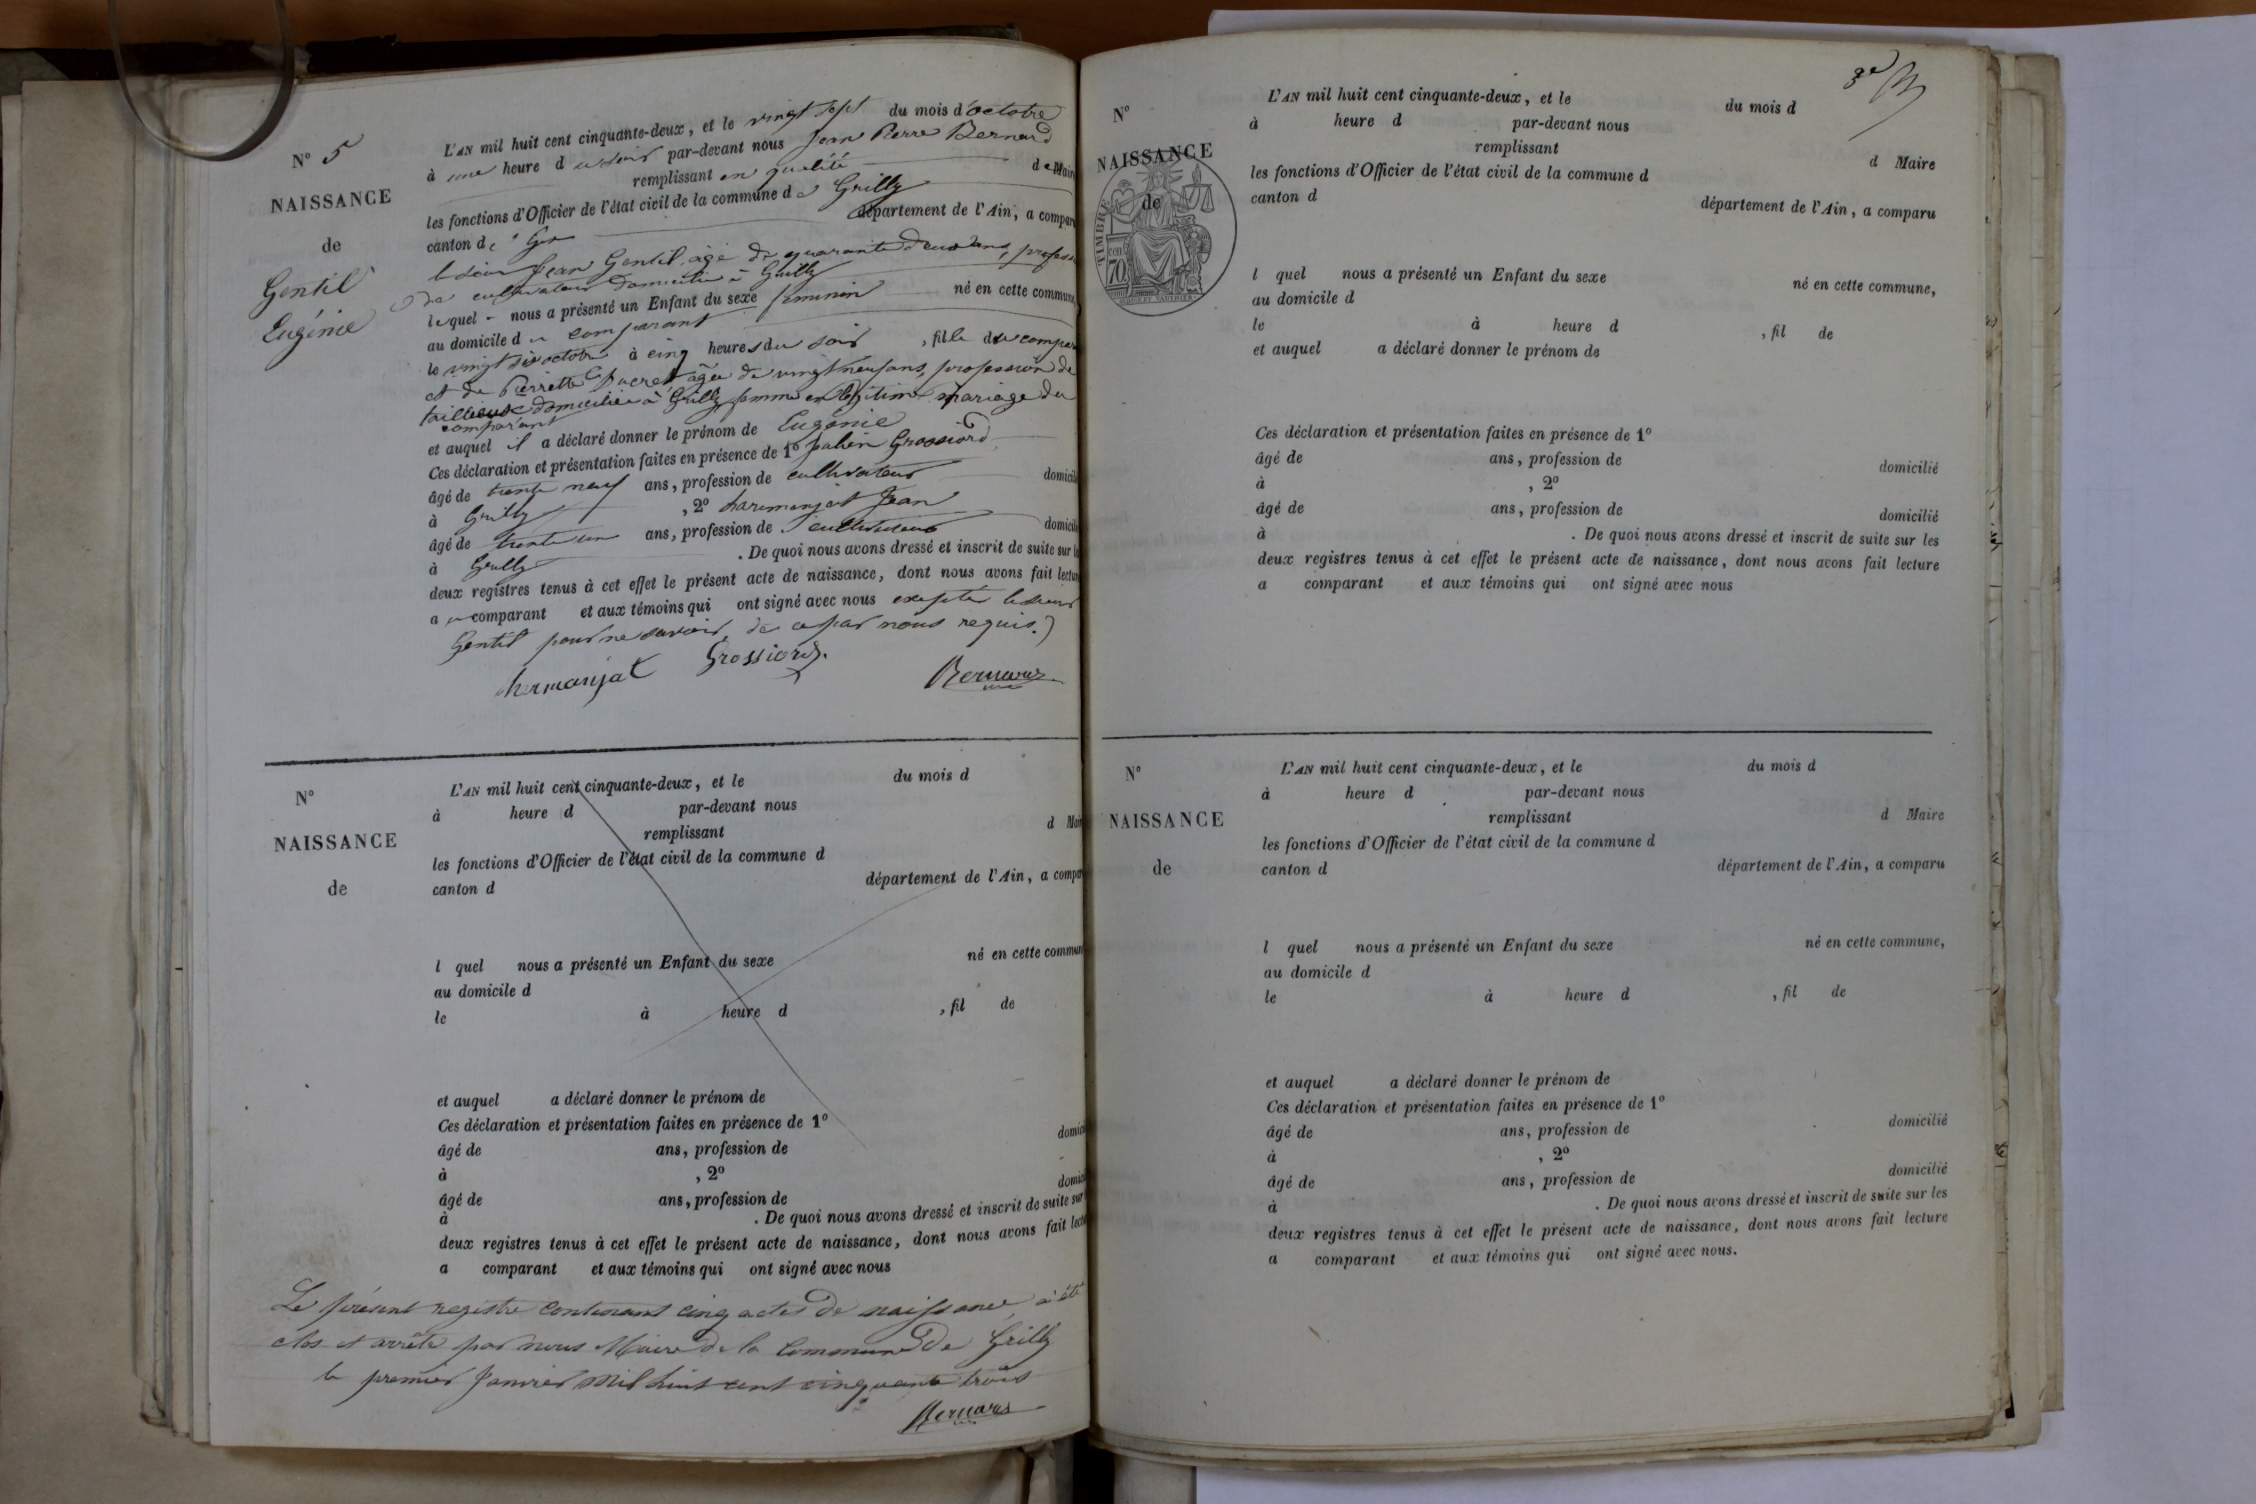 N° 5
NAISSANCE
de
Gentil
Eugénie
L'AN mil huit cent cinquante-deux, et le vingt sept du mois d'octobre
à une heure du soir par-devant nous Jean Pierre Bernard
remplissant en qualité de Maire
les fonctions d'Officier de l'état civil de la commune de Grilly
canton de Gex département de l'Ain, a comparu
le sieur Jean Gentil, âgé de quarante deux ans, profess
de cultivateur domicilié à Grilly
lequel nous a présenté un Enfant du sexe féminin né en cette commune,
au domicile du comparant
le vingt six octobre à cinq heures du soir, fille du compar
et de Pierrette âgée de vingt neuf ans, profession de
tailleuse domiciliée à Grilly femme en légitime mariage du
comparant
et auquel il a déclaré donner le prénom de Eugénie
Ces déclaration et présentation faites en présence de 1° Julien Grossiord
âgé de trente neuf ans, profession de cultivateur domicilié
à Grilly, 2° harmanjat Jean
âgé de trente un ans, profession de cultivateur domicilié
à Grilly. De quoi nous avons dressé et inscrit de suite sur les
deux registres tenus à cet effet le présent acte de naissance, dont nous avons fait lecture
au comparant et aux témoins qui ont signé avec nous excepté le sieur
Gentil pour ne savoir, de ce par nous requis.
hermanjat Grossiord. Bernard
N°
NAISSANCE
de
L'AN mil huit cent cinquante-deux, et le du mois d
à heure d par-devant nous
remplissant d Maire
les fonctions d'Officier de l'état civil de la commune d
canton d département de l'Ain, a compar
l quel nous a présenté un Enfant du sexe né en cette commun
au domicile d
le à heure d , fil de
et auquel a déclaré donner le prénom de
Ces déclaration et présentation faites en présence de 1°
âgé de ans, profession de domici
à , 2°
âgé de ans, profession de domici
à . De quoi nous avons dressé et inscrit de suite sur
deux registres tenus à cet effet le présent acte de naissance, dont nous avons fait lectu
a comparant et aux témoins qui ont signé avec nous
Le présent registre contenant cinq actes de naissance a été
clos et arrêté par nous Maire de la Commune de Grilly
le premier Janvier mil huit cent cinquante trois
Bernard
N°
NAISSANCE
de
TIMBRE
70
L'AN mil huit cent cinquante-deux, et le du mois d
à heure d par-devant nous
remplissant d Maire
les fonctions d'Officier de l'état civil de la commune d
canton d département de l'Ain, a comparu
l quel nous a présenté un Enfant du sexe né en cette commune,
au domicile d
le à heure d , fil de
et auquel a déclaré donner le prénom de
Ces déclaration et présentation faites en présence de 1°
âgé de ans, profession de domicilié
à , 2°
âgé de ans, profession de domicilié
à . De quoi nous avons dressé et inscrit de suite sur les
deux registres tenus à cet effet le présent acte de naissance, dont nous avons fait lecture
a comparant et aux témoins qui ont signé avec nous
N°
NAISSANCE
de
L'AN mil huit cent cinquante-deux, et le du mois d
à heure d par-devant nous
remplissant d Maire
les fonctions d'Officier de l'état civil de la commune d
canton d département de l'Ain, a comparu
l quel nous a présenté un Enfant du sexe né en cette commune,
au domicile d
le à heure d , fil de
et auquel a déclaré donner le prénom de
Ces déclaration et présentation faites en présence de 1°
âgé de ans, profession de domicilié
à , 2°
âgé de ans, profession de domicilié
à . De quoi nous avons dressé et inscrit de suite sur les
deux registres tenus à cet effet le présent acte de naissance, dont nous avons fait lecture
a comparant et aux témoins qui ont signé avec nous.